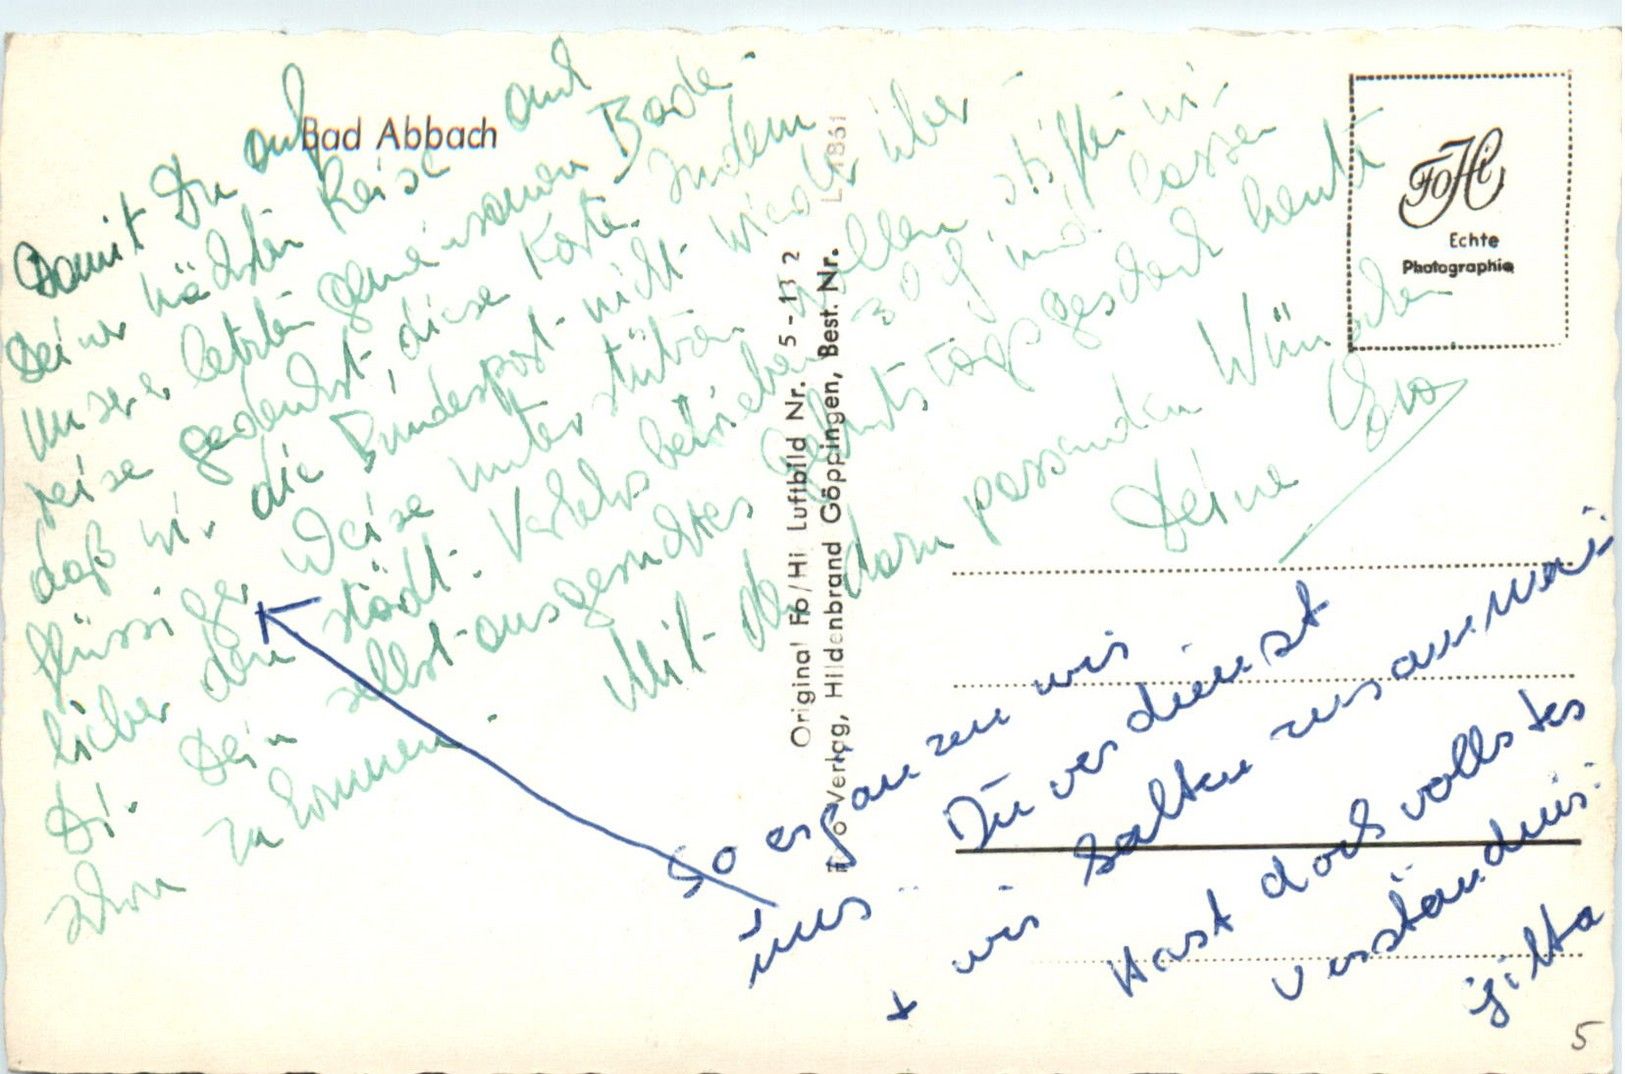 Bad Abbach
Damit Du auf
Deiner nächsten Reise auch
unserer letzten gemeinsamen Bade-
reise gedenkst, diese Karte. Indem
daß wir die Bundespost nicht wieder über-
flüssiger Weise unterstützen wollen stiften wir
lieber den städt. Verkehrsbetrieben 30 Pf und lassen
Dir Dein selbst ausgesuchtes Geburtstagsgeschenk heute
schon zukommen.
Mit den dazu passenden Wünschen
Deine Eva
So ergänzen wir
uns: Du verdienst
+ wir halten zusammen
Hast doch vollstes
Verständnis:
Jitta
Original Fo/Hi Luftbild Nr. 5-132
Foto Verlag, Hildenbrand Göppingen, Best. Nr. L 1861
FoHi
Echte
Photographie
5